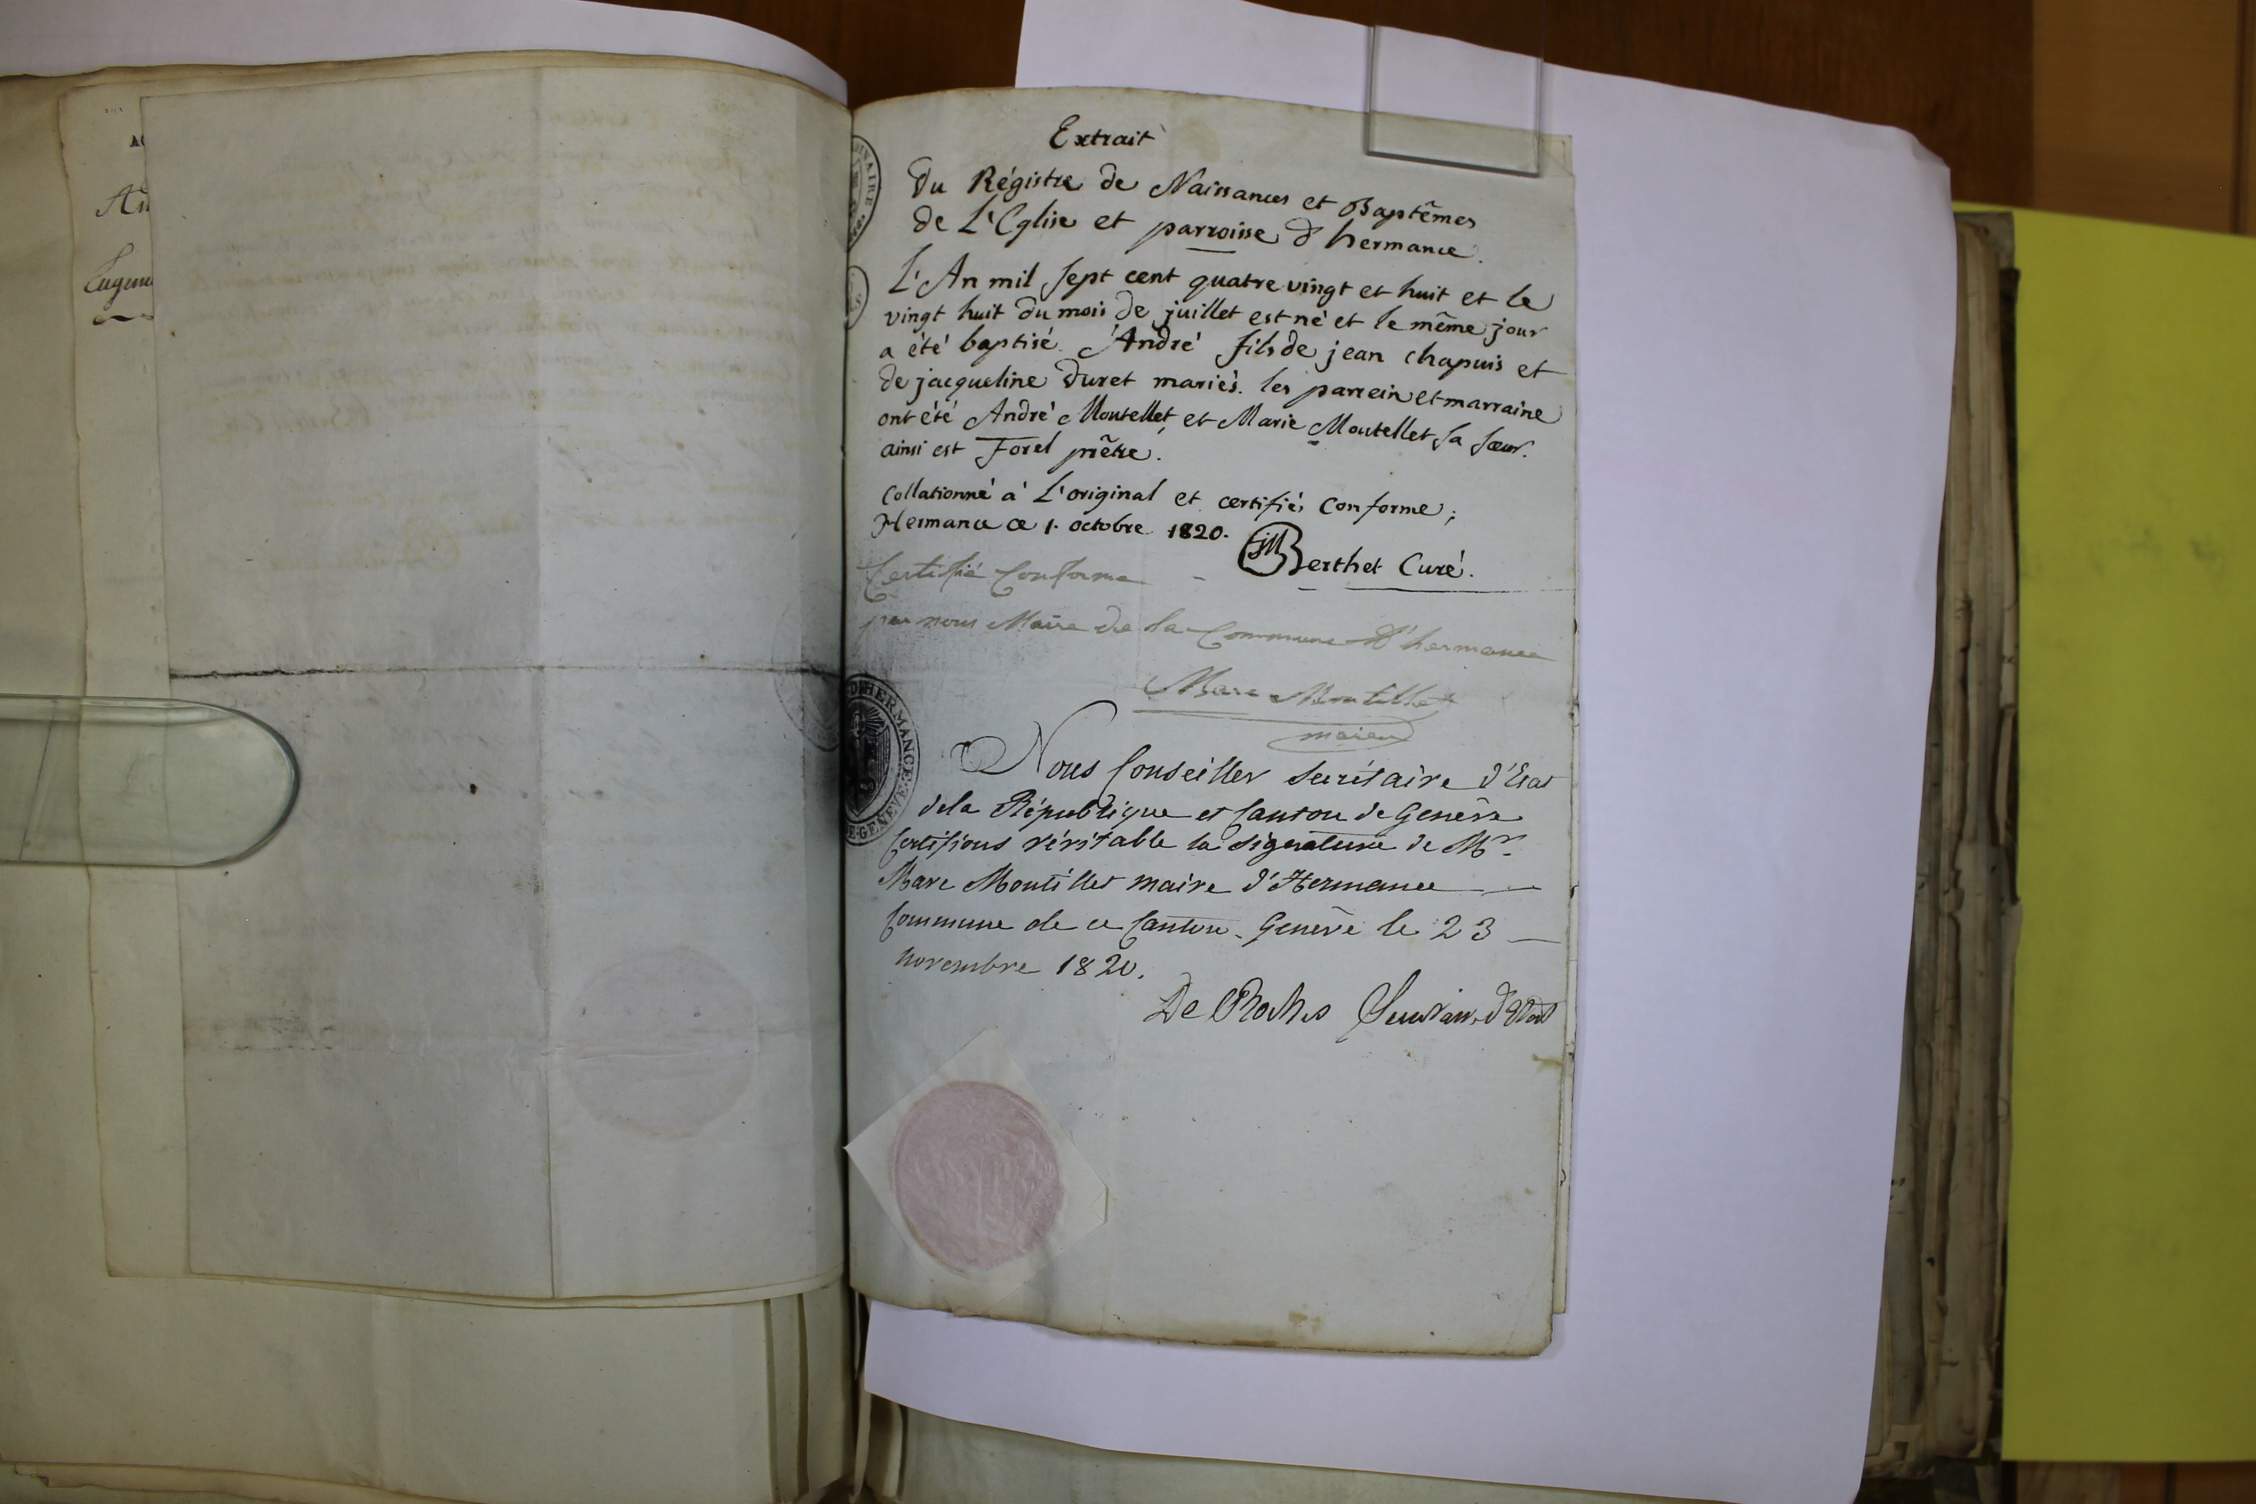 Extrait
Du Régistre de Naissances et Baptêmes
de L'Eglise et parroisse d'hermance.
L'An mil sept cent quatre vingt et huit et le
vingt huit du mois de juillet est né et le même jour
a été baptisé André fils de jean chapuis et
de jacqueline Duret mariés. les parrein et marraine
ont été André Moutellet et Marie Moutellet sa sœur.
ainsi est Forel prêtre.
Collationné à L'original et certifié, conforme;
Hermance ce 1. octobre 1820.
JM Berthet Curé.
Certifié Conforme
par nous Maire de la Commune d'hermance
Marc Moutillet
maire
D'HERMANCE
GENEVE
Nous Conseiller Secrétaire d'Etat
de la République et Canton de Genève
Certifions véritable la signature de Mr.
Marc Moutillet maire d'Hermance
Commune de ce Canton. Genève le 23
novembre 1820.
De Roches Secrétaire d'Etat